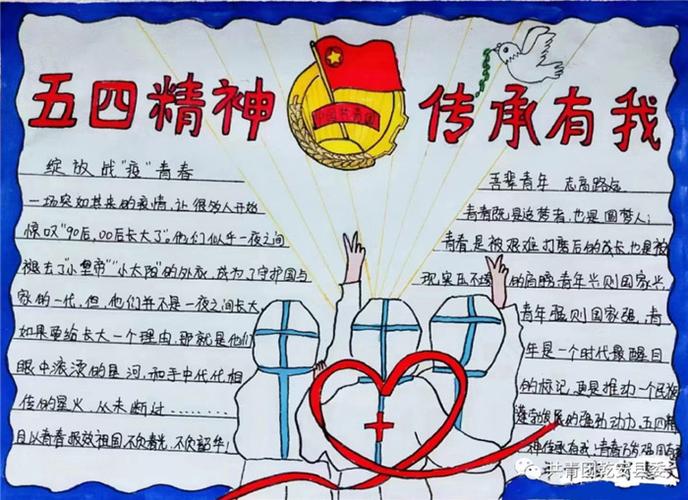 五四精神
中国共青团
传承有我
绽放战"疫"青春
一场突如其来的疫情,让很多人开始
惊叹"90后,00后长大了"。他们似乎一夜之间
褪去了"小皇帝""小太阳"的外衣,成为了守护国与
家的一代,但,他们并不是一夜之间长大,
如果要给长大一个理由,那就是他们
眼中滚滚的星河,和手中代代相
传的星火,从未断过………
且以青春报效祖国,不负春光,不负韶华!
吾辈青年 志高路远
青春既是追梦者,也是圆梦人;
青春是被艰难打磨后的成长,也是被
现实压不垮的肩膀,青年兴则国家兴,
青年强则国家强,青
年是一个时代最醒目
的标记,更是推动一个民族
蓬勃发展的强劲动力,五四精
神传承有我,青春
共青团乾安县委